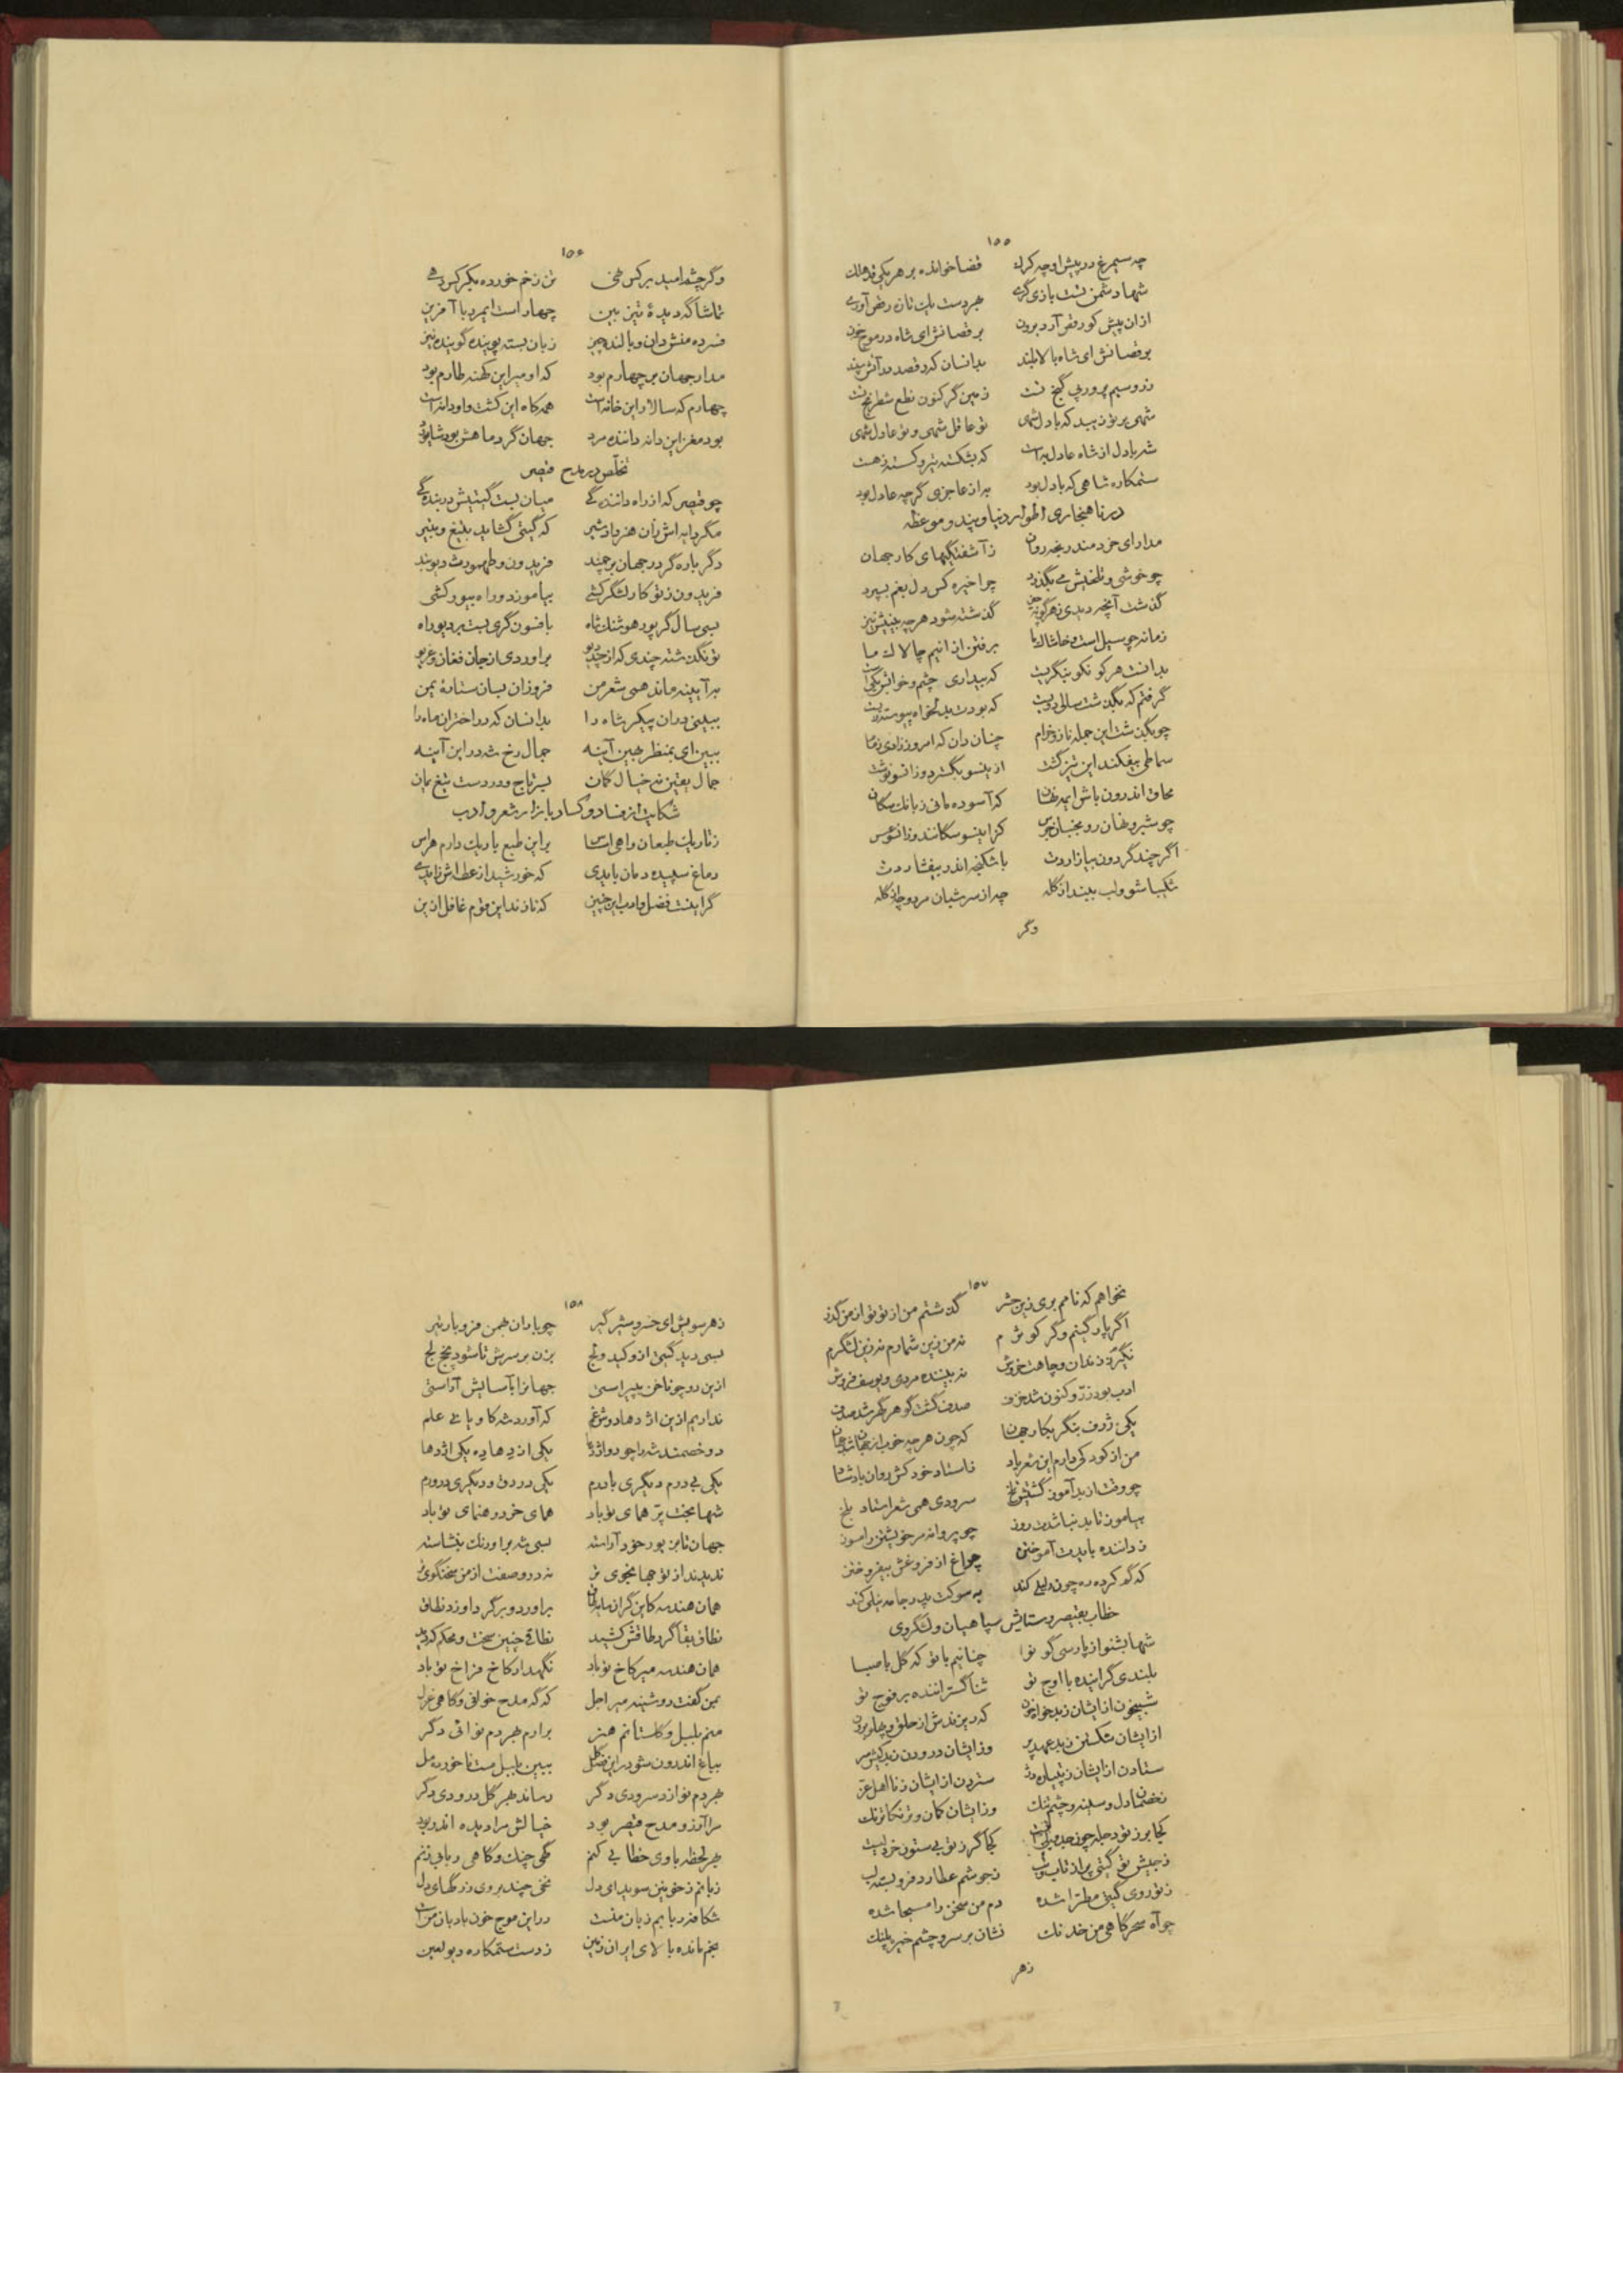 ۱۵۵
چه سیمرغ در پیش او چه کرک قضا خوانده بر هر یکی
شها دشمنت بازی گری بهر دست یک تازه رقص آوری
از ان پیش کو رقص آرد برون برقصانش ای شاه در موج خون
برقصانش ای شاه بالا بلند بدانسان که رقصد در آتش سپند
زر و سیم پرور پی گنج تست زمین گر کنون نطع شطرنج تست
شهی بر تو زیبد که بادل شهی تو عاقل شهی و تو عادل شهی
شه بادل از شاه عادل به است که بشکسته نیرو کسته زهست
ستمکاره شاهی که بادل بود به از عاجزی گرچه عادل بود
در ناهنجاری اطوار دنیا و پند و موعظه
مدار ای خردمند رنجه روان ز آشفتگیهای کار جهان
چو خوشی و تلخیش می بگذرد چرا خیره کس دل بغم بسپرد
گذشت آنچه دیدی ز هر گونه چیز گذشته شود هر چه بینیش نیز
زمانه چو سیل است و خاشاک ما برفتن از انیم چالاک ما
بدانست هر کو نکو بنگریست که بیداری چشم و خوابش یکی است
گرفتم که بگذشت سالی دویست که بودت بدلخواه پیوسته زیست
چو بگذشت این جمله ناز و خرام چنان دان که امروز زادی ز مام
سماطی بیفکند این تیز گشت ازینسو بگسترد وزانسو نوشت
محاق اندرون باش ای مه نهان که آسوده مانی ز بانگ سگان
چو شبرو نهان رو مجنبان جرس کز اینسو سگانند وزانسو عسس
اگر چند گردون بیازاردت باشکنجه اندر بیفشاردت
شکیبا شو و لب ببند از گله چه از سر شبان مرد و چه از گله
وگر
۱۵۶
وگر چشم امید بر کس نهی تن زخم خورده بکرکس دهی
تماشاگه دیدهٔ تیز بین چهار است ایمرد با آفرین
فسرده منش دان و بالنده چیز زبان بسته پوینده گوینده نیز
مدار جهان بر چهارم بود که او میر این کهنه طارم بود
چهارم که سالار این خانه است همه کاه این کشت و او دانه است
بود مغز این دانه داننده مرد جهان گرد ماهش بود شاپورد
تخلص در مدح قیصر
چو قیصر که از راه دانندگی میان بست گیتیش در بندگی
مگر دایه اش زان هنر داد شیر که گیتی گشاید بتیغ و بتیر
دگر باره گر در جهان برجهند فریدون و طهمورث دیوبند
فریدون ز تو کار لشگر کشی بیاموزد و راه بیور کشی
بسی سال گر پور هوشنگ شاه بافسون گری بست بر دیو راه
تو نگذشته چندی که از چند دیو برآوردی از جان فغان و غریو
به آیینه ماند همی شعر من فروزان بسان ستارهٔ یمن
ببینی در ان پیکر شاه را بدانسان که در اختران ماه را
ببین ای بمنظر بهین آینه جمال رخ شه در این آینه
جمال یقین نه خیال گمان بسر تاج و در دست تیغ یمان
شکایت از فساد و کساد بازار شعر و ادب
ز تاریک طبعان واهی اساس بر این طبع باریک دارم هراس
دماغ سپیده دمان بایدی که خورشید از عطاش زایدی
گر اینست فضل و ادب این چنین که نازند این قوم غافل ازین
۱۵۷
نخواهم که نامم بری زین حشر گذشتم من از تو تو از من گذر
اگر باد گیتم وگر کوثرم نه من زین شمارم نه زین لشگرم
نگیرد ز ندان و چاهت خروش نه بیننده مردی و یوسف فروش
ادب بود زر و کنون شد خزف صدف گشت گوهر گهر شد صدف
یکی ژرف بنگر بکار جهان که چون هر چه خوب از جهان شد نهان
من از کودکی دارم این شعر یاد ز استاد خود کش روان باد شاد
چو وقت از بد آموز گشتیش تلخ سرودی همی شعر استاد بلخ
بیاموز تا بد نباشدت روز چو پروانه مر خویشتن را مسوز
ز داننده بایدت آموختن چراغ از فروغش بیفروختن
که گم کرده ره چون دلیلی کند به سوکت پدر جامه نیلی کند
خطاب بقیصر و ستایش سپاهیان و لشگر وی
شها بشنو از پارسی گو نوا چنانیم با تو که گل با صبا
بلندی گراینده با اوج تو ثنا گستراننده بر فوج تو
شبیخون از ایشان ز بدخواه خون که دیزندش از حلق و پهلو برون
از ایشان شکستن ز بد عهد پر وزایشان درودن ز بدکیش سر
ستادن از ایشان ستردن از ایشان ز نا اهل عز
ز خصمان دل و سینه و چشم تنگ وزایشان کمان و ز ترکان ترنگ
کجا برز تو دجله چون جدولی است کجا گرز تو بیستون خردلیست
ز جیش تو گیتی پر از تاب و تب ز جوشم عطارد فرو بسته لب
ز تو روی گیتی مطرا شده دم من سخن را مسیحا شده
چو آه سحرگاهی من خدنگ نشان بر سر و چشم خیره پلنگ
زهر
۱۵۸
ز هر سویش ای خسرو شیر گیر چو باران بهمن فرو بار تیر
بسی دید گیتی ازو کید و لج بزن بر سرش تا شود مخ لخ
ازین رو چو ناخن بپیراستی جهانرا بآسایش آراستی
نداریم ازین اژدها دوش غم که آورده شه کاویانی علم
دو خصمند شه را چو دو اژدها یکی از دها ده یکی اژدها
یکی بی درم دیگری بادرم یکی در دق و دیگری در ورم
شها بخت پر همای تو باد همای خرد رهنمای تو باد
جهان تا بن پور خود آراسته بسی شه بر اورنگ بنشاسته
ندیدند از تو جهانجوی تر نه در وصفت از من سخنگوی تر
همان هندسه کاین گران سایه طاق برآورد و بر گرد او زد نطاق
نطاق بقا گرد طاقش کشید نطاقی چنین سخت و محکم که دید
همان هندسه میر کاخ تو باد نگهدار کاخ فراخ تو باد
بمن گفت دوشینه میر اجل که گه مدح خوانی و گاهی غزل
منم بلبل و گلستانم هنر برآرم بهر دم نوائی دگر
بباغ اندرون شو در این فصل گل ببین بلبل مست ناخورده مل
بهر دم نوازد سرودی دگر رساند بهر گل درودی دگر
مرا آرزو مدح قیصر بود خیالش مرا دیده اندر بود
بهر لحظه با وی خطابی کنم گهی چنگ و گاهی ربابی زنم
زبانم ز خونین سویدای دل نخی چند بر وی ز رگهای دل
شکافنده دریایم زبان منست در این موج خون بادبان منست
بخم مانده بالای ایران زمین ز دست ستمکاره دیو لعین